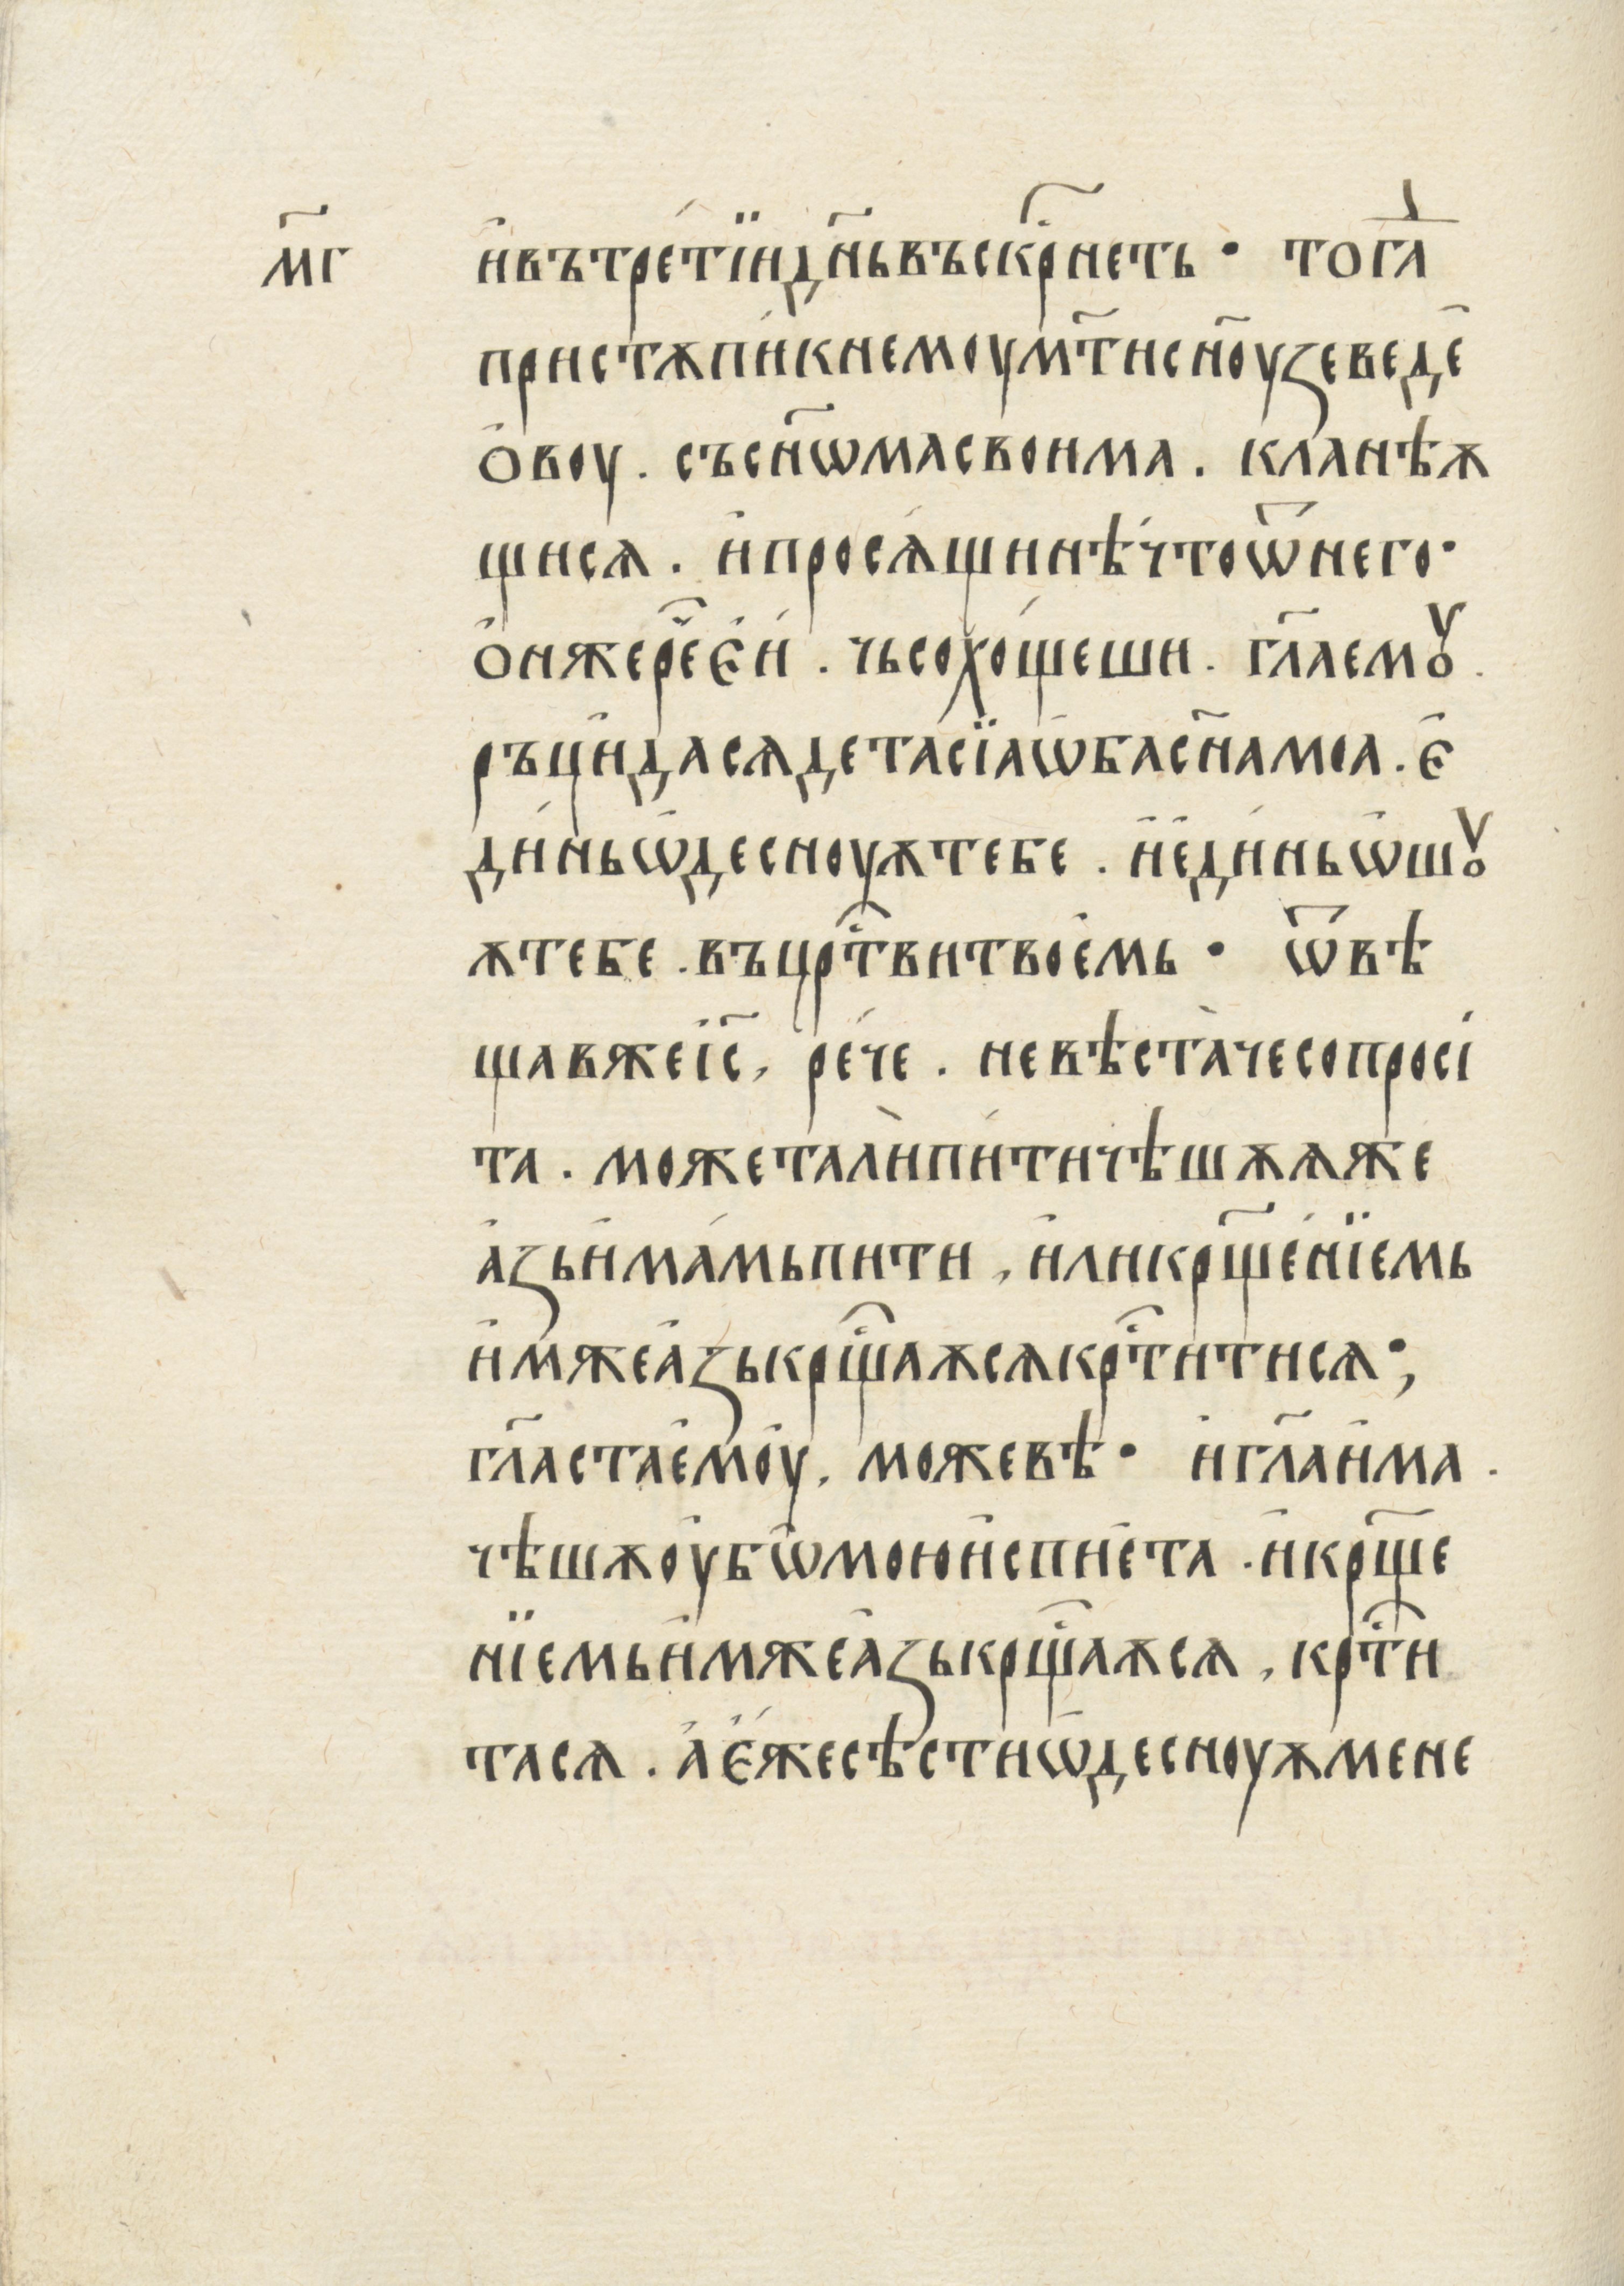 м҃г и҆вътре́тїидн҃ьвъскрⷭ҇неть · тогдⷶ
пристѫпи́кнемоум҃тисн҃оуꙁеведе҆
ѻ҆воу . съсн҃ѡмасвоима . кланѣѫ
щисѧ . и҆просѧ́щинѣ́чтоѿнего·
ѻ҆нжереⷱ҇є҆́и . чьсохо́щеши . гл҃аемꙋ .
ръци҆дасѧдетасїаѡ҆басн҃амоа . є҆
ди́ньѡ҆десноуѫтебе . и҆е҆ди́ньѡ҆шꙋ
ѫтебе . въцрⷭ҇твитвое҆мь · ѿвѣ
щавжеі҆с҃ , ре́че . невѣста̀чесопросі
та . можетали̇̀пи́тичѣшѫѧже
а҆ꙁьи҆ма́мьпити , и҆ликрⷭ҇ще́нїемь
и҆мжеа҆ꙁькрⷭ҇щаѫсѧкрⷭ҇титисѧ·,
гл҃астае҆моу҆ , можевѣ · и҆гл҃аи҆ма .
чѣшѫоу҆бѡ҆моюи҆спие҆та . и҆крⷭ҇ще
нїемьи҆мжеа҆ꙁькрⷭ҇щаѫсѧ , крⷭ҇ти
тасѧ . а҆є҆́жесѣстиѡ҆десноуѫмене